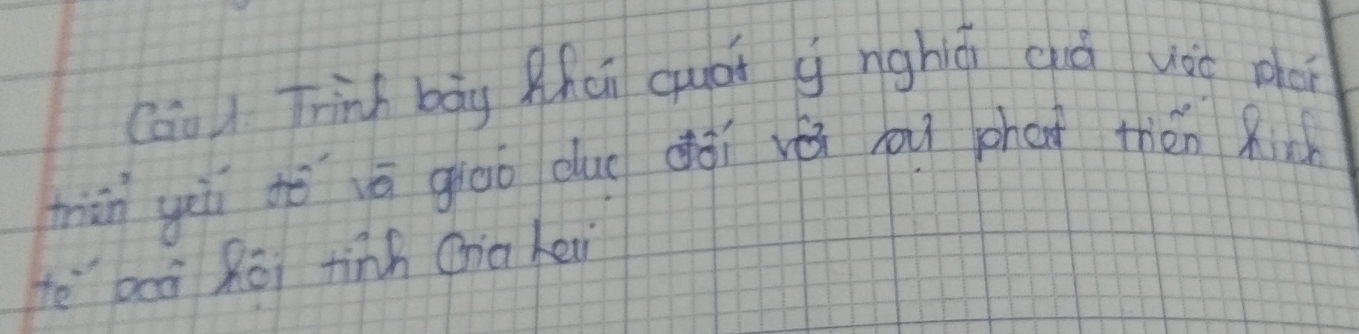 Câu 1. Trình bày khái quát ý nghĩa của việc phát
triển yếu tố về giáo dục đối với sự phát triển kinh
tế xã hội tỉnh Gia Lai